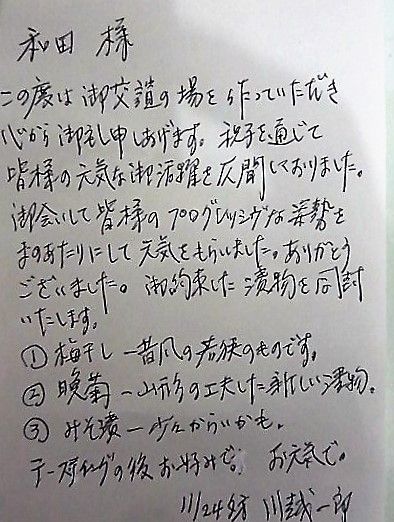 和田 様
この度は御交誼の場を作っていただき
心から御礼申しあげます。祝子を通じて
皆様の元気な御活躍を仄聞しておりました。
御会いして皆様のプログレッシヴな姿勢を
まのあたりにして元気をもらいました。ありがとう
ございました。御約束した漬物を同封
いたします。
① 梅干し ー昔風の若狭のものです。
② 晩菊 ー山形の工夫した新しい漬物。
③ みそ漬ー少々からいかも。
テースティングの後お好みで。 お元気で。
11/24夕 川越一郎